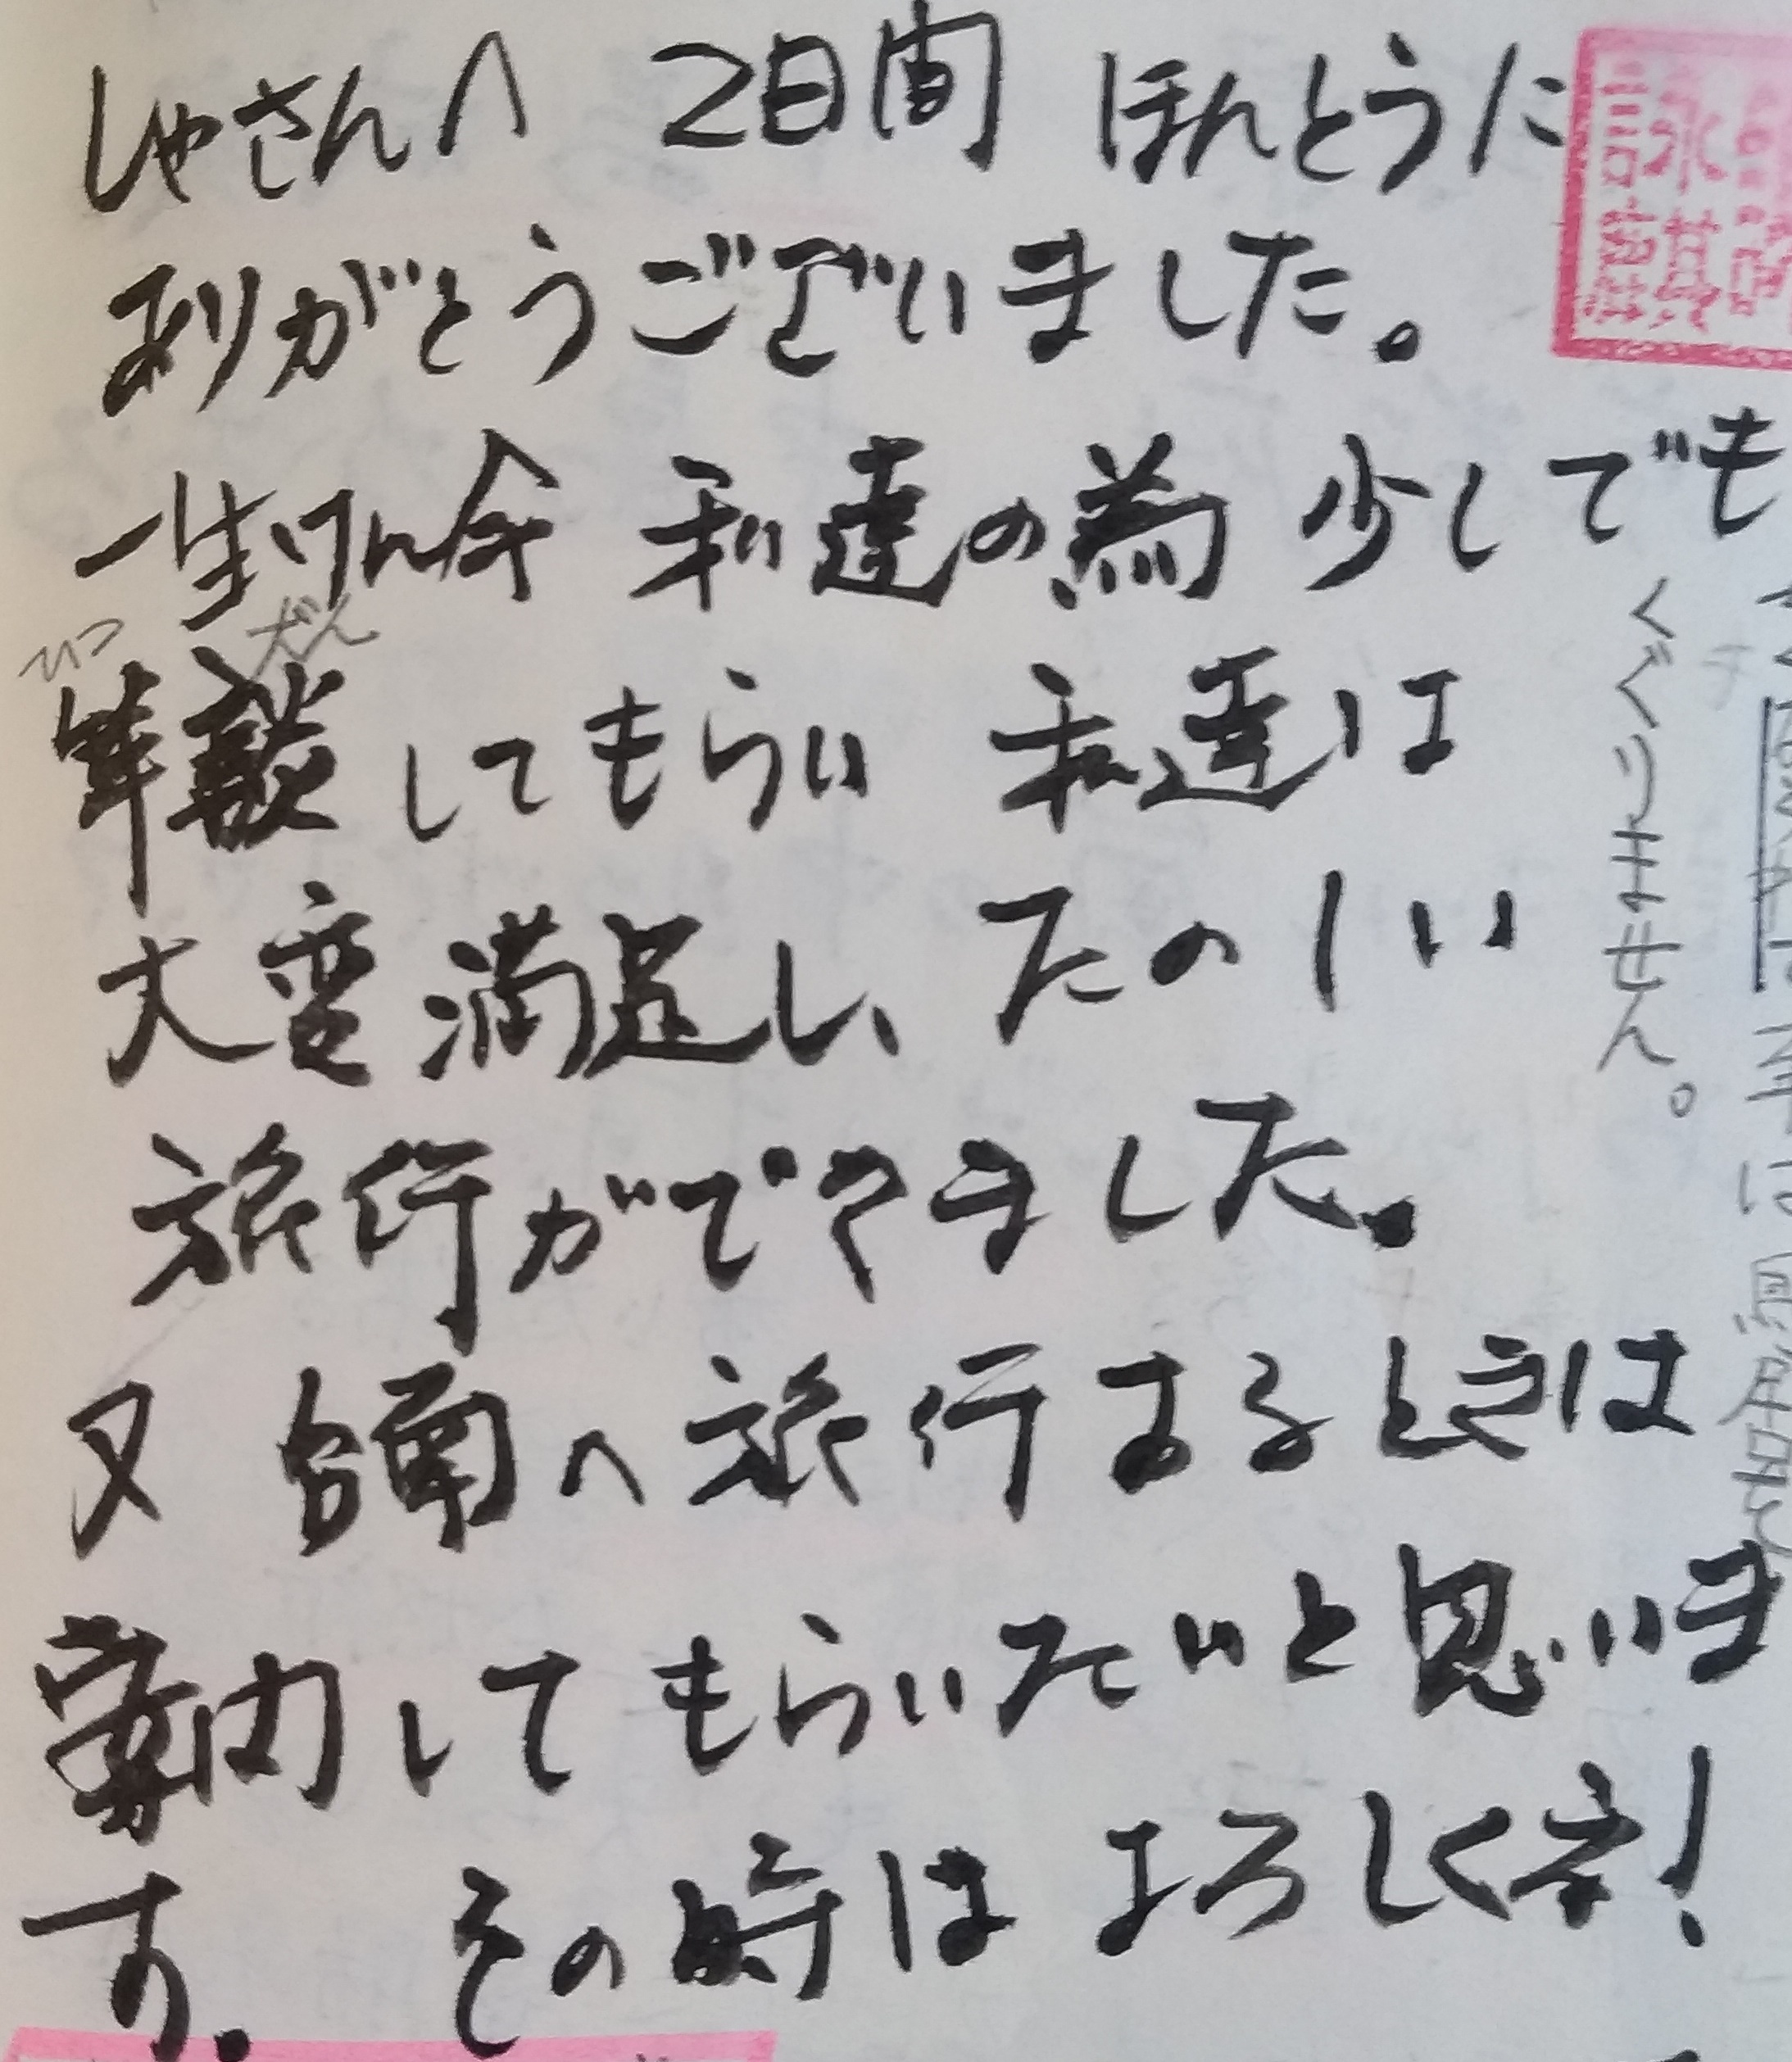 しゃさんへ 2日間 ほんとうに
ありがとうございました。
一生けん命 私達の為 少しでも
ひつ だん
筆談してもらい 私達は
大変満足し、たのしい
旅行ができました。
又 台南へ旅行するときは
案内してもらいたいと思いま
す。 その時はよろしく字!
くぐりません。